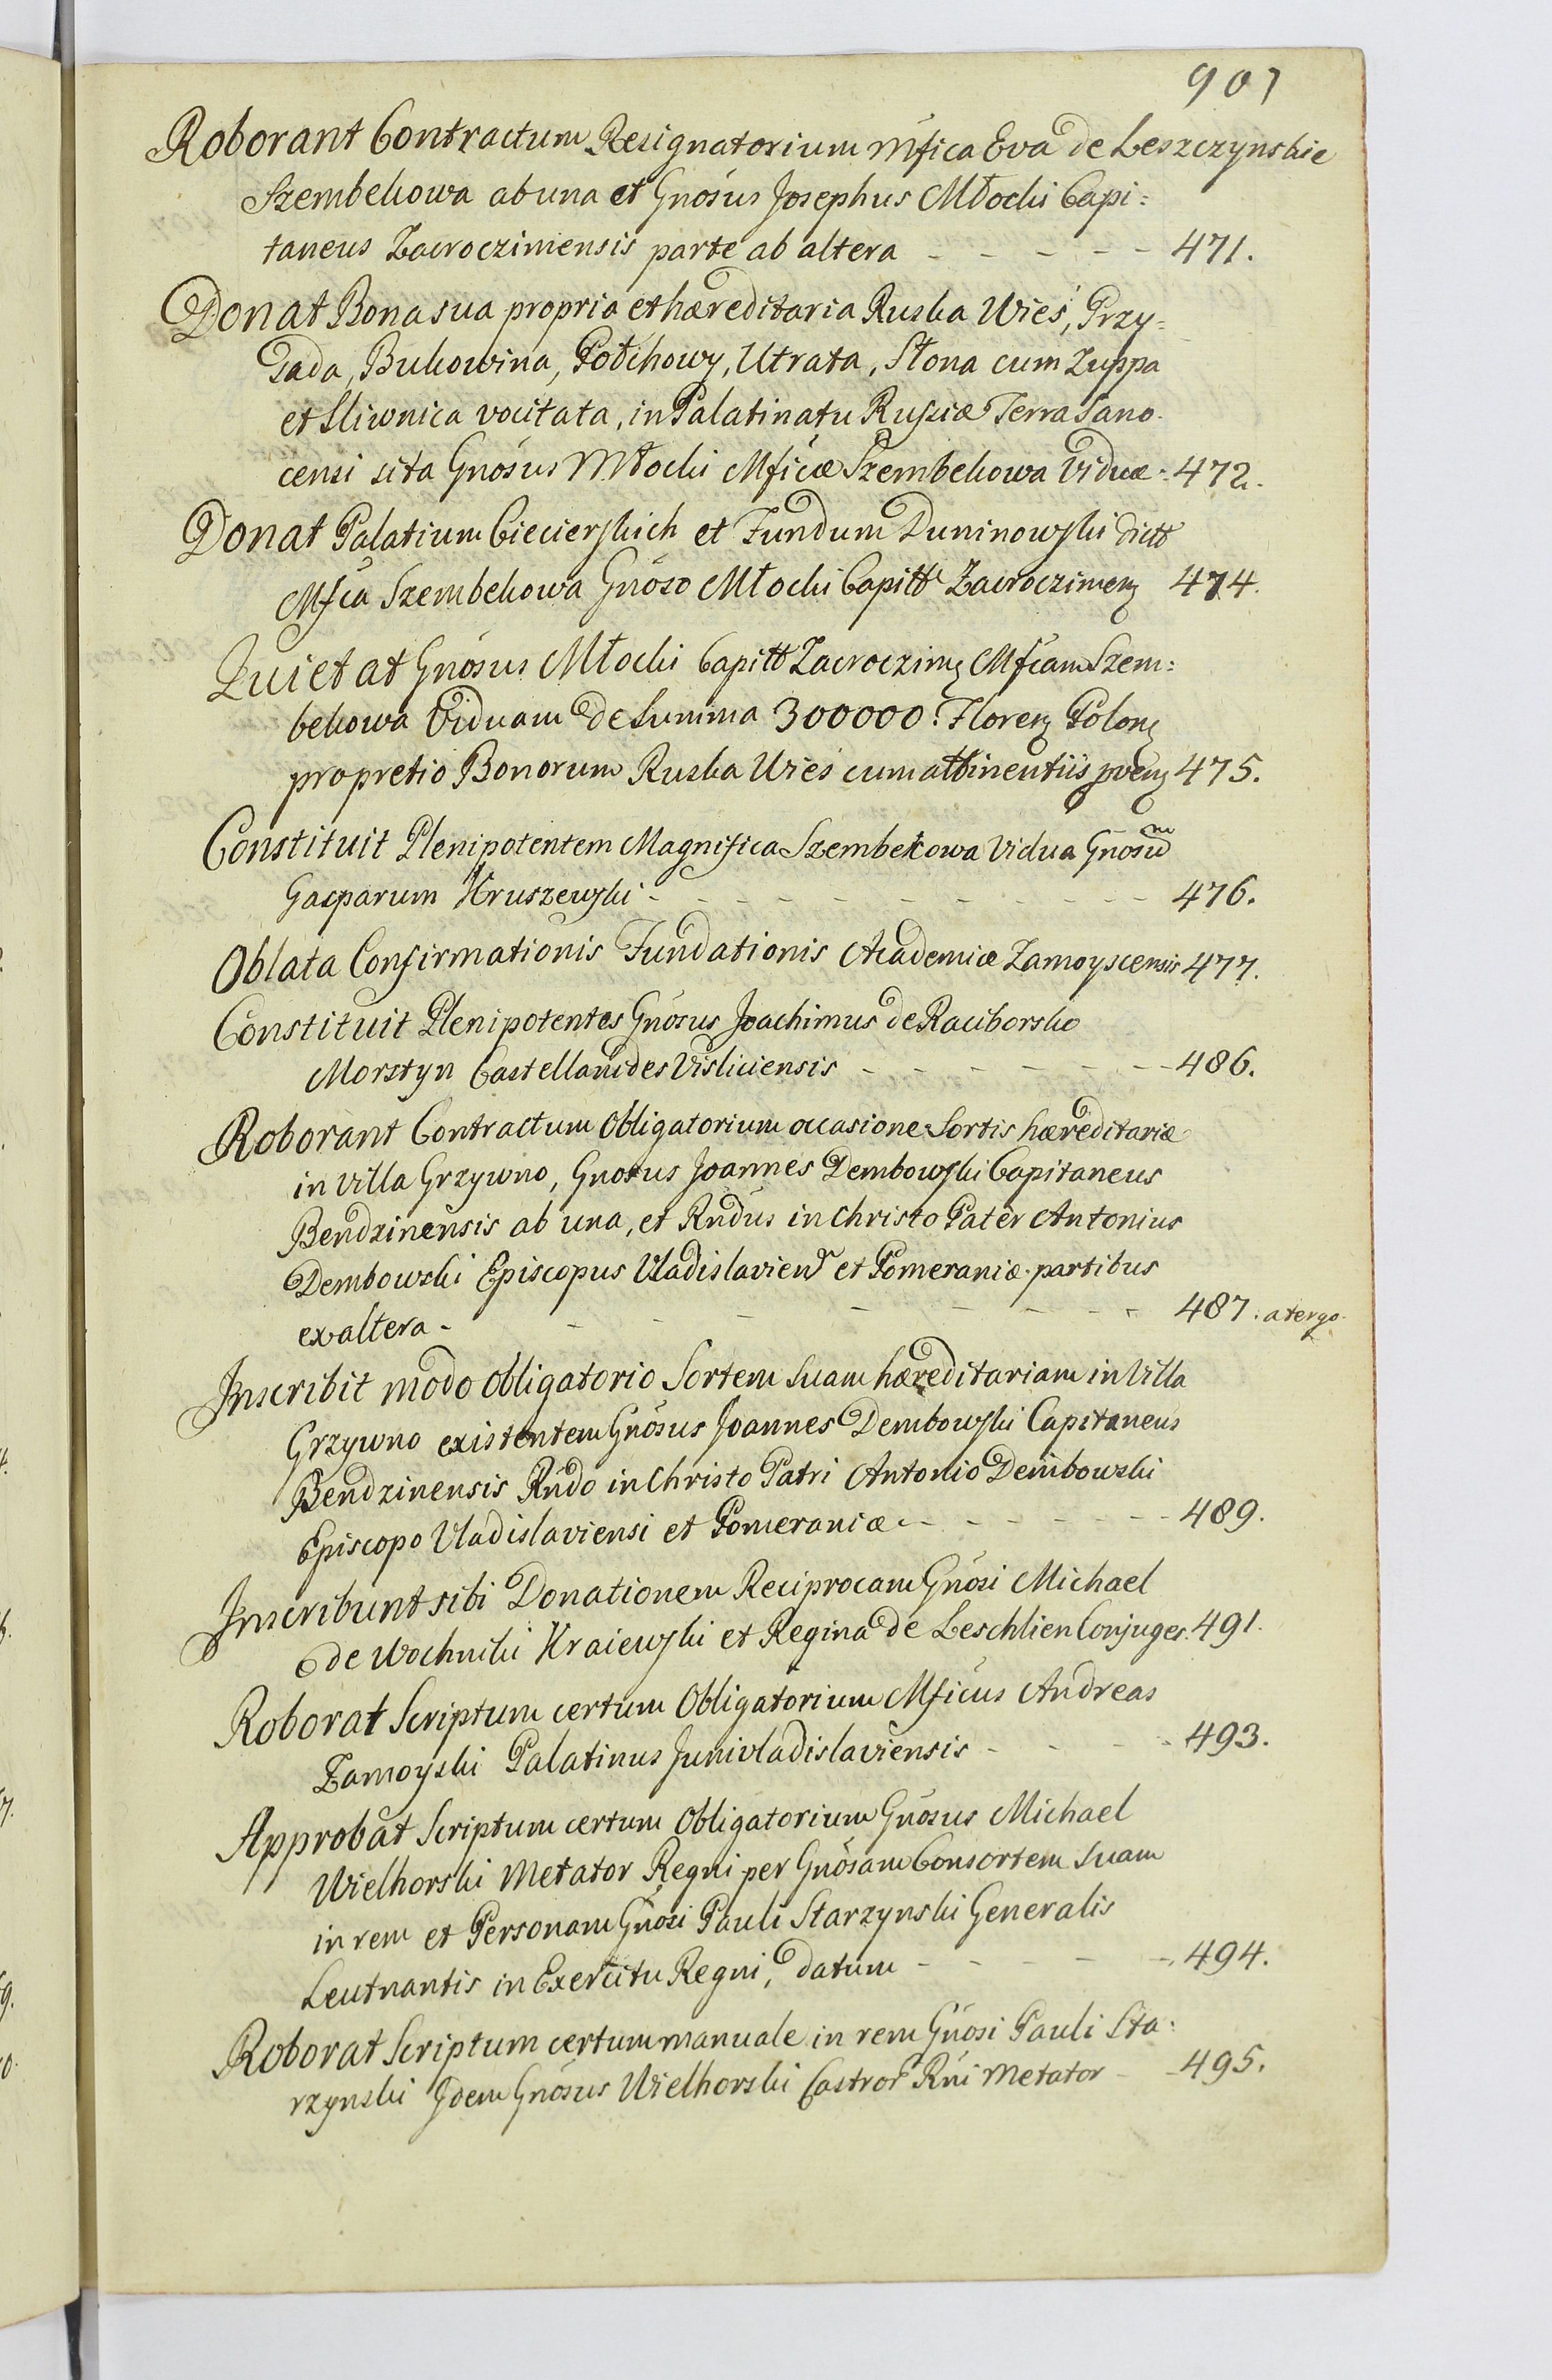 901
Roborant Contractum Resignatorium Mfica Eva de Leszczynskie
Szembekowa ab una et Gnosus Josephus Młocki Capi=
taneus Zacroczimensis parte ab altera - - - - - 471.
Donat Bona sua propria et hæreditaria Ruska Wieś, Przy=
Bukowina, Utrata, Słona cum Zuppa
et Sliwnica vocitata, in Palatinatu Russiæ Terra Sano-
censi sita Gnosus Młocki Mficæ Szembekowa Viduæ - 472.
Donat Palatium Ciecierskich et Fundum Duninowski dictt
Mfica Szembekowa Gnoso Młocki Capitt Zacroczimen 474.
Quietat Gnosus Młocki Capitt Zacroczim Mficam Szem=
bekowa Viduam de Summa 300000. Floren Polon
pro pretio Bonorum Ruska Wieś cum attinentiis 475.
Constituit Plenipotentem Magnifica Szembekowa Vidua Gnosum
Gasparum Kruszewski - - - - - - - - - 476.
Oblata Confirmationis Fundationis Academiæ Zamoyscensis 477.
Constituit Plenipotentes Gnosus Joachimus de Raciborsko
Morstyn Castellanides Visliciensis - - - - - - 486.
Roborant Contractum Obligatorium occasione Sortis hæreditariæ
in Villa Grzywno, Gnosus Joannes Dembowski Capitaneus
Bendzinensis ab una, et Rndus in Christo Pater Antonius
Dembowski Episcopus Vladislavien et Pomeraniæ partibus
ex altera - - - - - - - - 487. a tergo
Inscribit modo obligatorio Sortem suam hæreditariam in Villa
Grzywno existentem Gnosus Joannes Dembowski Capitaneus
Bendzinensis Rndo in Christo Patri Antonio Dembowski
Episcopo Vladislaviensi et Pomeraniæ - - - - - - 489.
Inscribunt sibi Donationem Reciprocam Gnosi Michael
de Wochniki Kraiewski et Regina de Leschlien Conjuges. 491.
Roborat Scriptum certum Obligatorium Mficus Andreas
Zamoyski Palatinus Junivladislaviensis - - - - 493.
Approbat Scriptum certum Obligatorium Gnosus Michael
Wielhorski Metator Regni per Gnosam Consortem Suam
in rem et Personam Gnosi Pauli Starzynski Generalis
Leutnantis in Exercitu Regni, datum - - - - - 494.
Roborat Scriptum certum manuale in rem Gnosi Pauli Sta=
rzynski Idem Gnosus Wielhorski Castror Rni Metator - - 495.